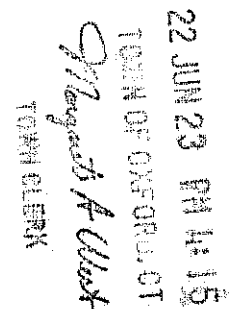 22 JUN 29 PM 4:15
TOWN OF OXFORD, CT
Margaret A. West
TOWN CLERK